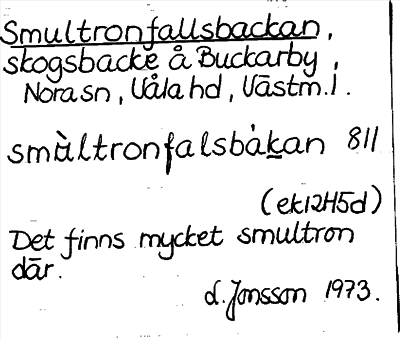 Smultronfallsbackan,
skogsbacke å Buckarby,
Nora sn, Våla hd, Västm. l.
smu̇̀ltronfalsbȧkan 811
(ek12H5d)
Det finns mycket smultron
där.
d. Jonsson 1973.